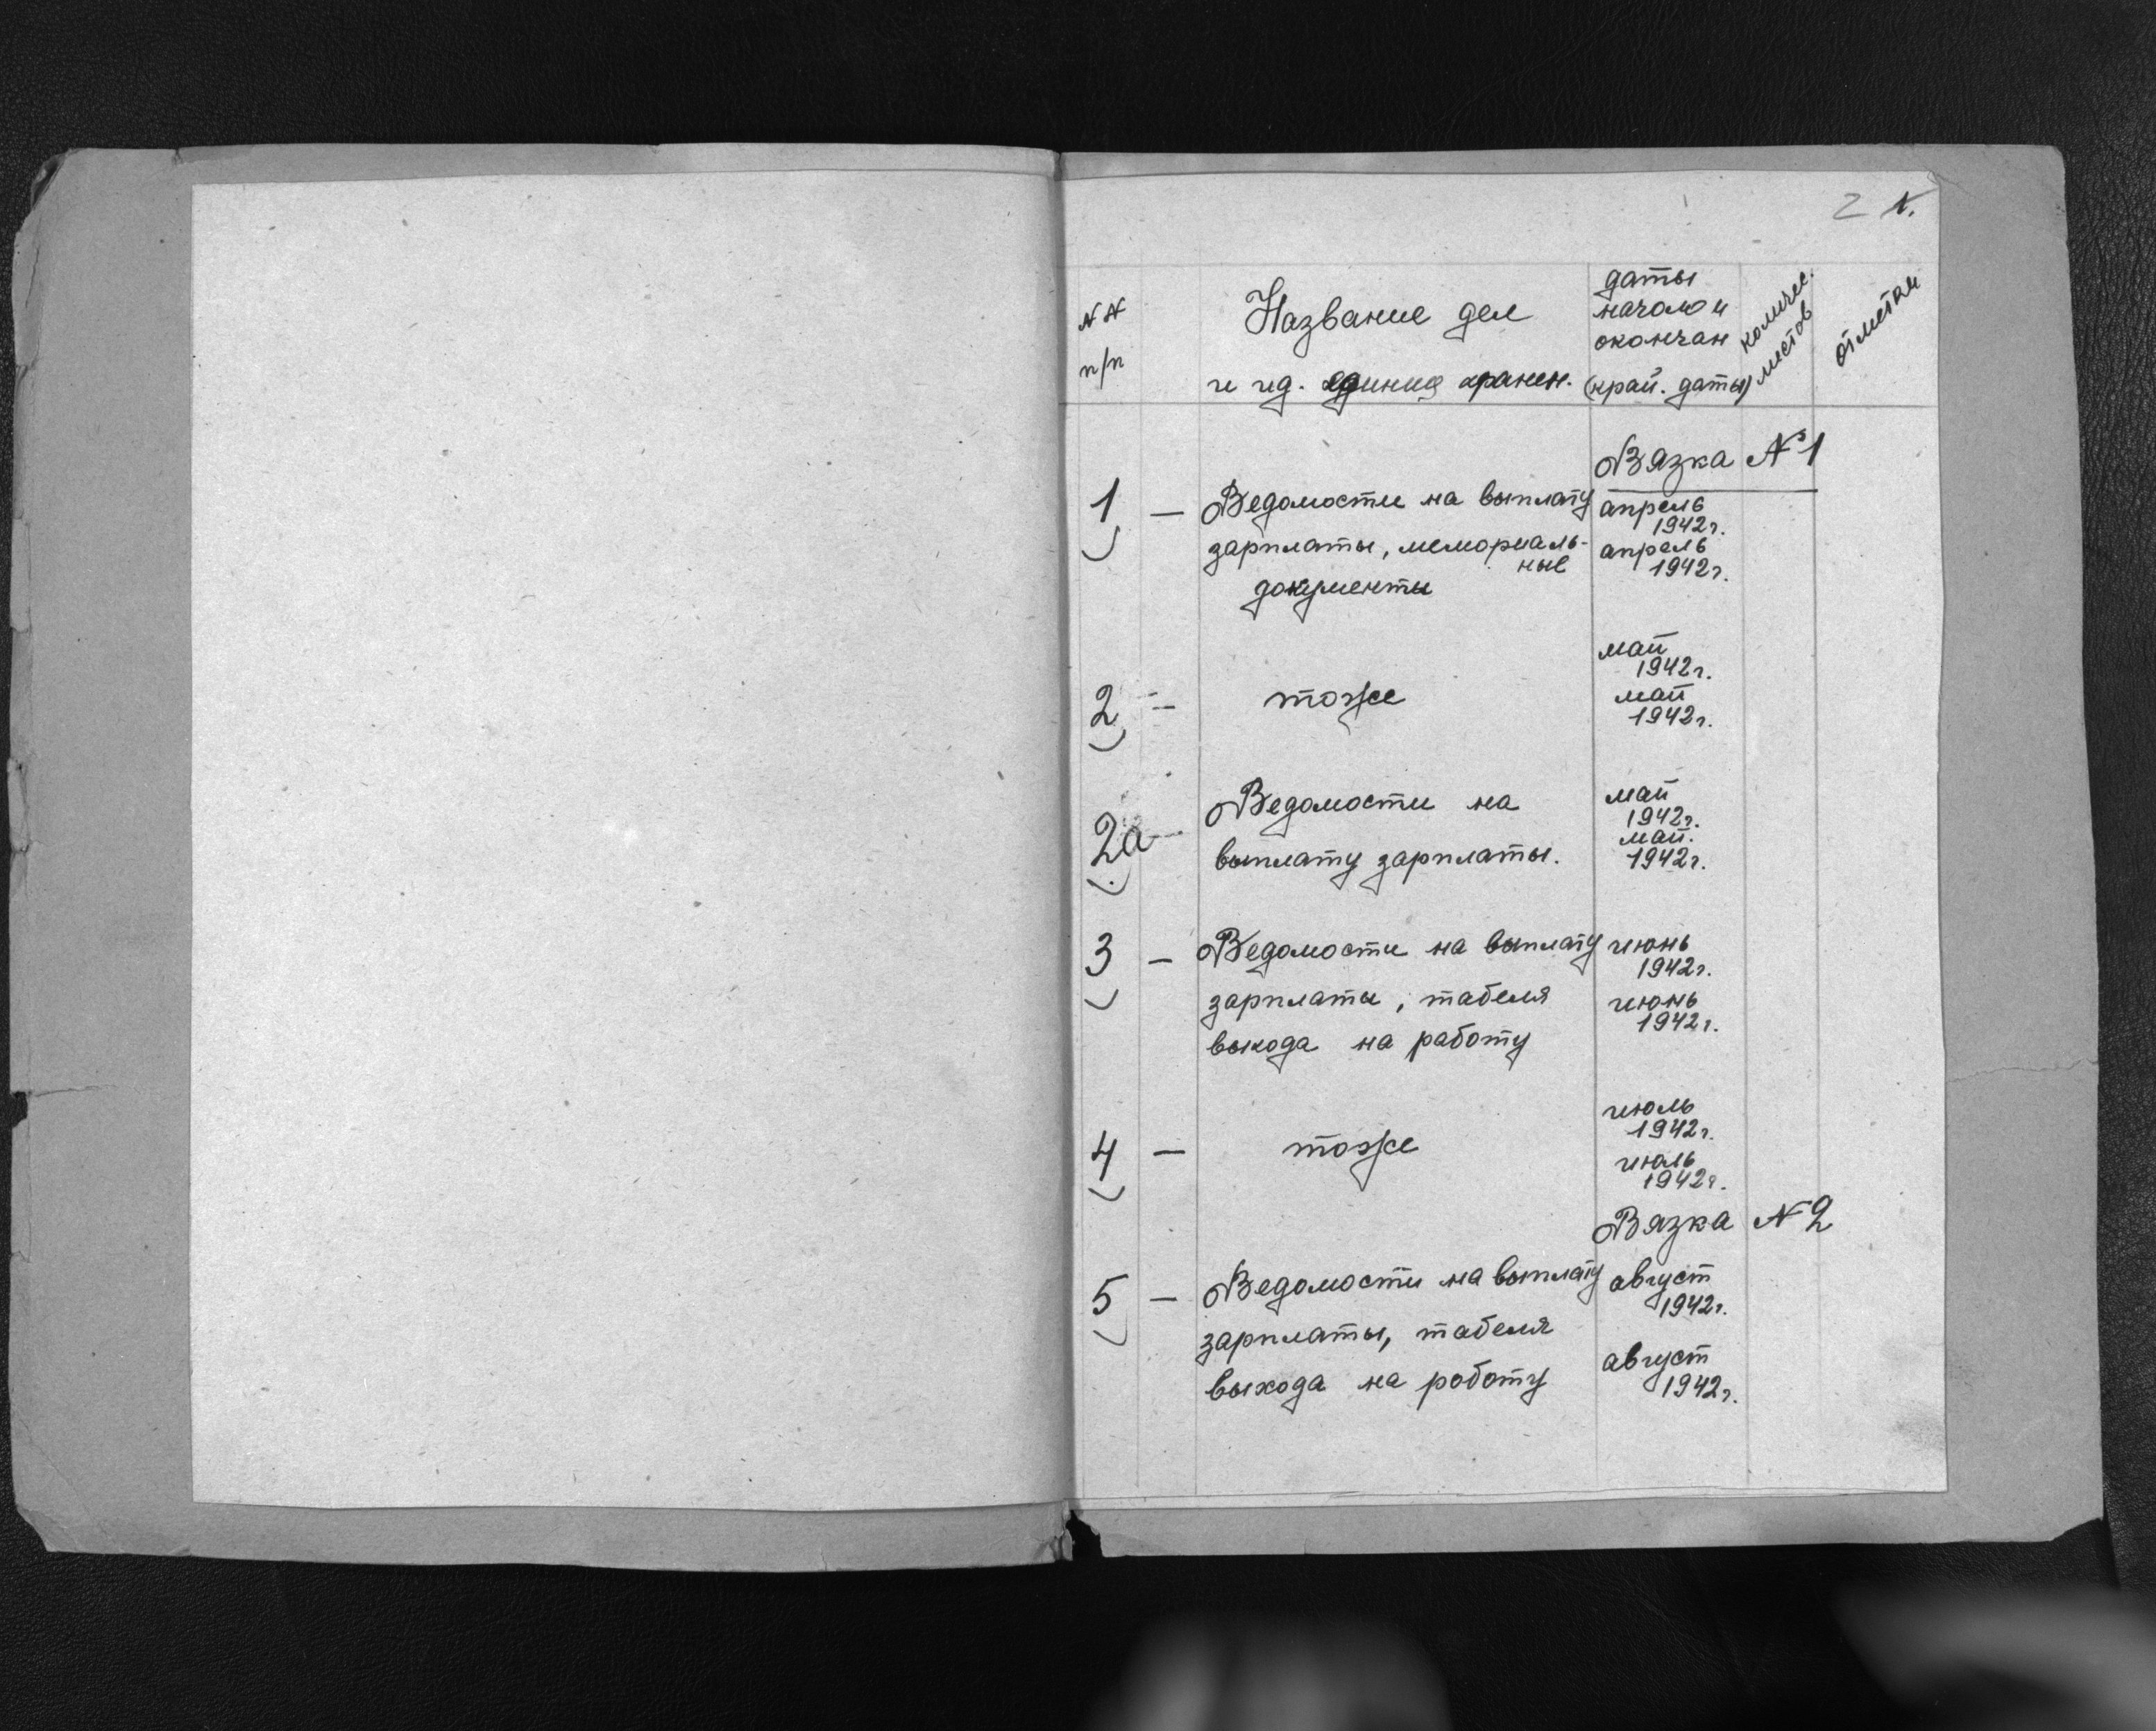 2 1.
NN
п/п
Название дел
и ид. единиц хранен.
даты
начало и
окончан
(край. даты)
количес.
листов
отметки
Вязка №1
1 — Ведомости на выплату
зарплаты, мемориаль-
ные
документы
апрель
1942г.
апрель
1942г.
2 — тоже
май
1942г.
май
1942г.
2а — Ведомости на
выплату зарплаты.
май
1942г.
май.
1942г.
3 — Ведомости на выплату
зарплаты, табеля
выхода на работу
июнь
1942г.
июнь
1942г.
4 — тоже
июль
1942г.
июль
1942г.
Вязка N2
5 — Ведомости на выплату
зарплаты, табеля
выхода на роботу
август
1942г.
август
1942г.